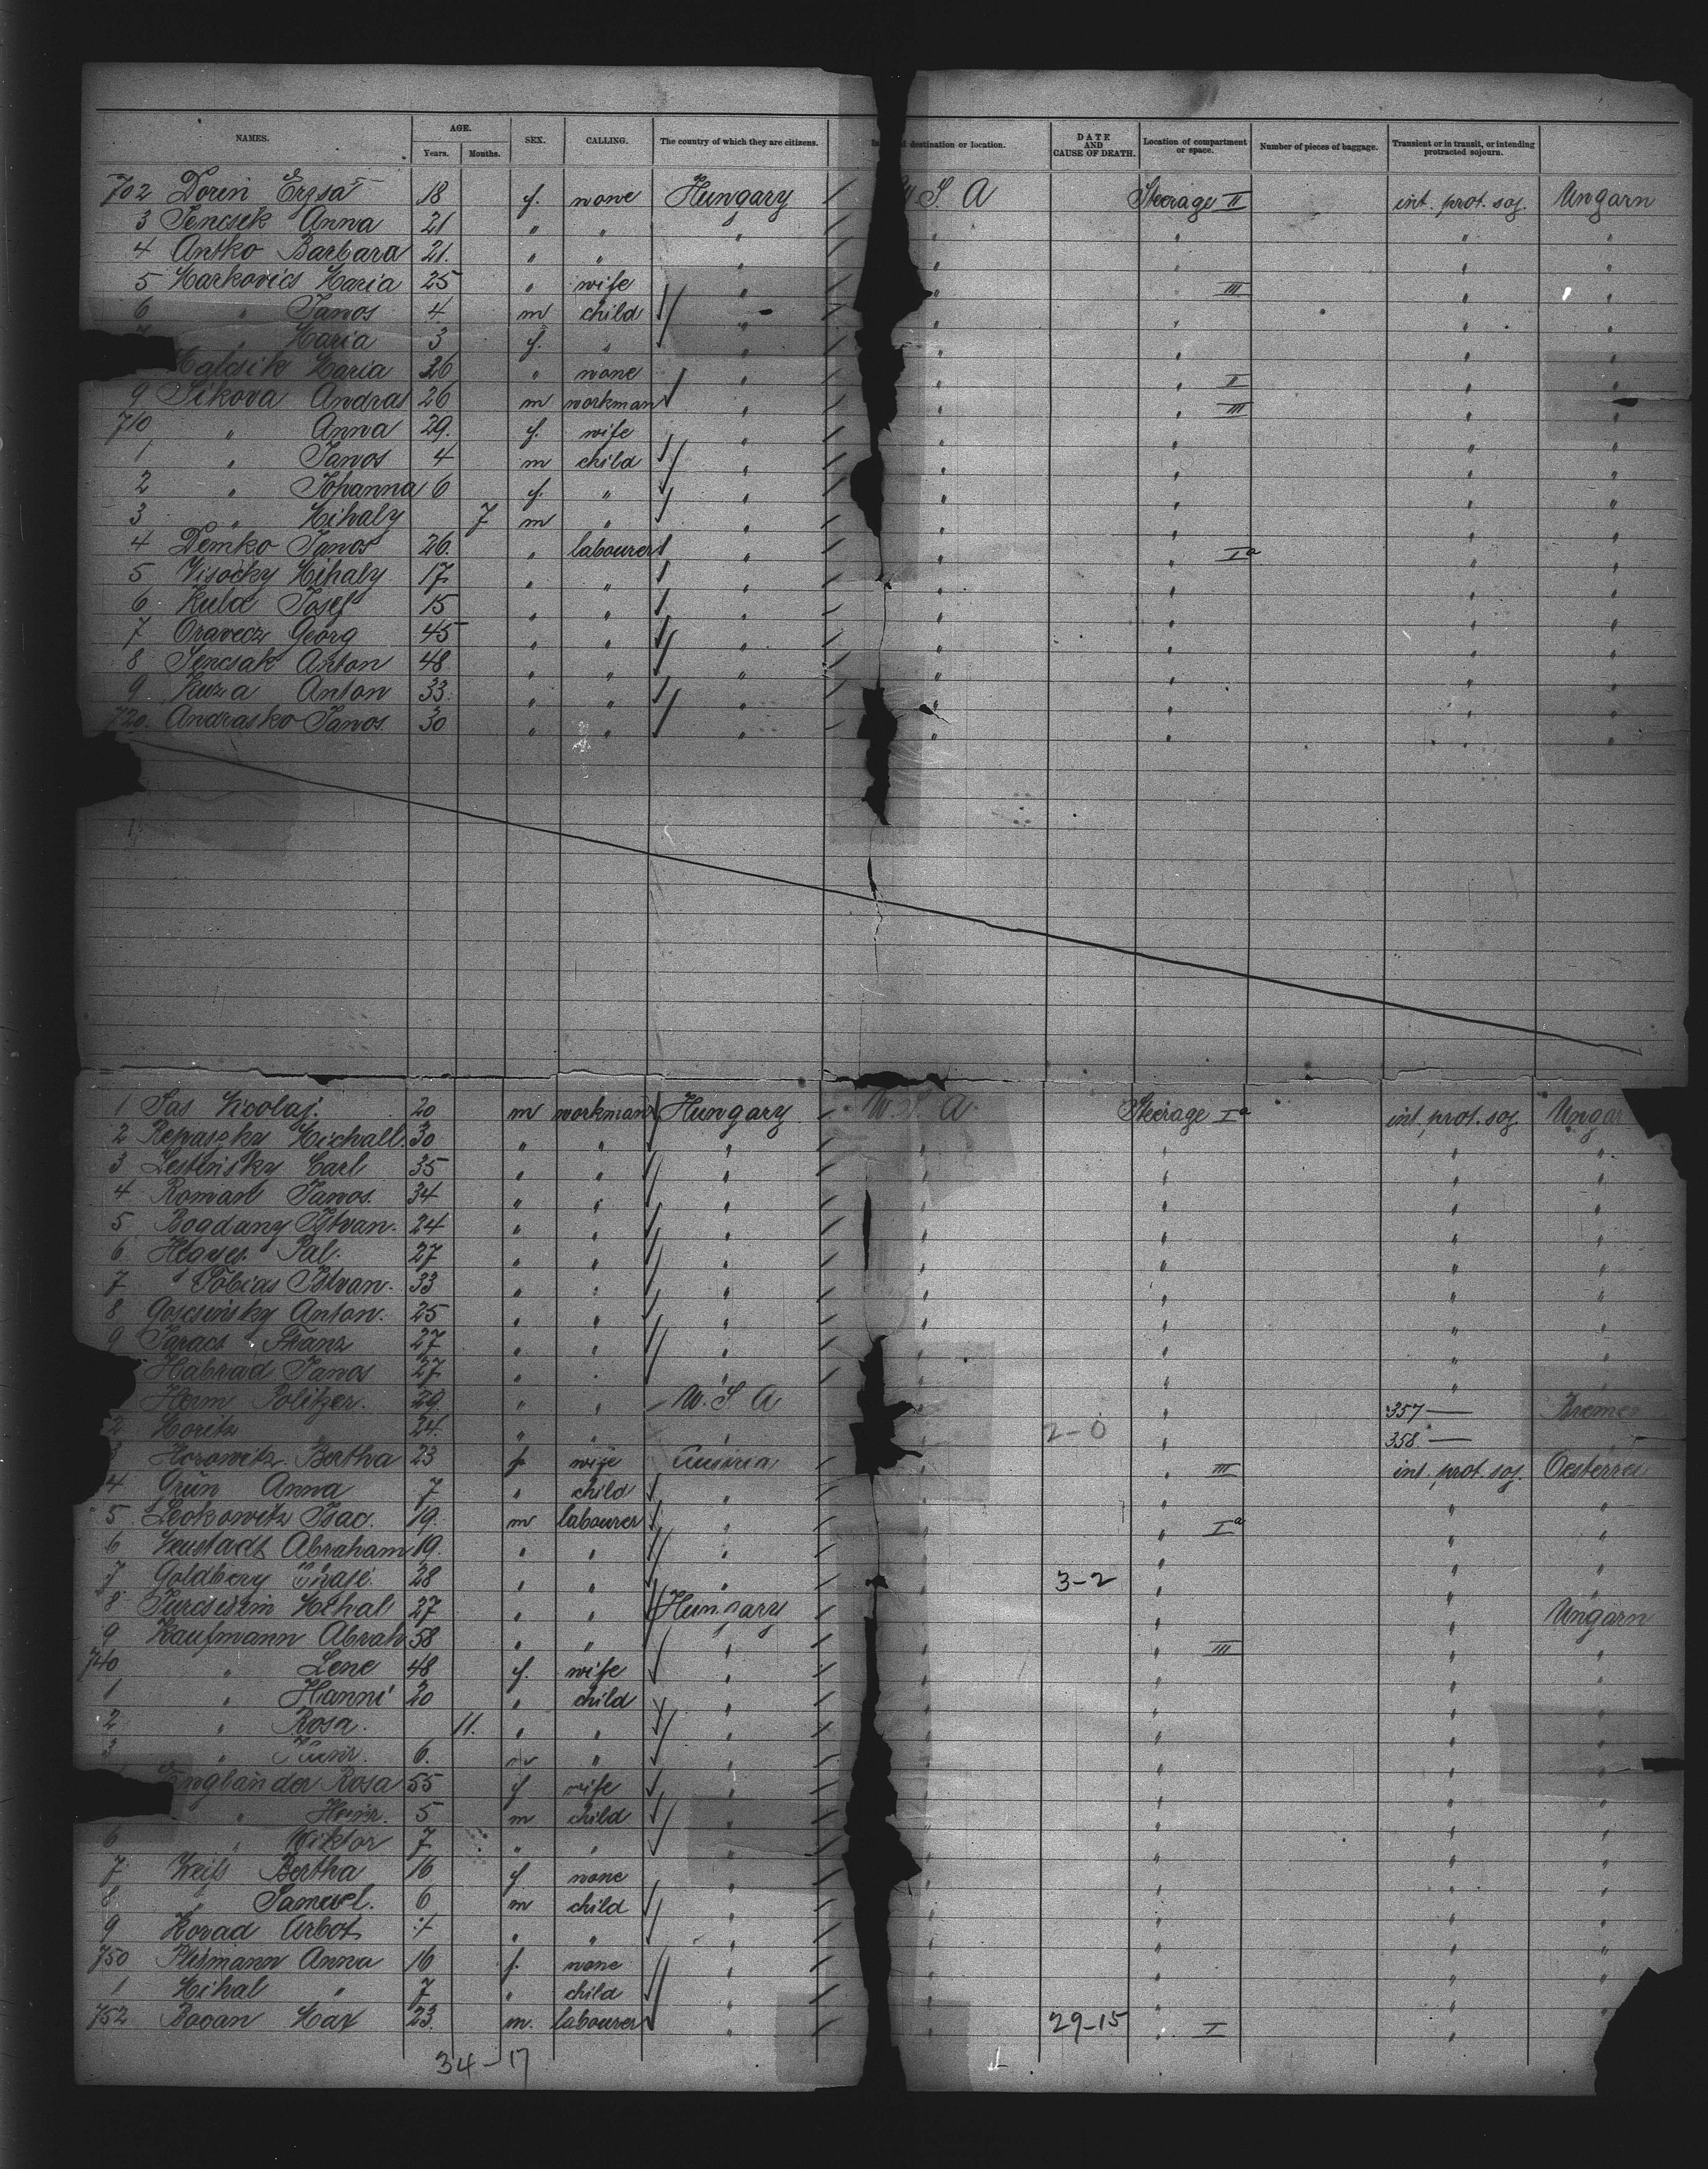 NAMES. AGE. SEX. CALLING. The country of which they are citizens. destination or location. DATE AND CAUSE OF DEATH. Location of compartment or space. Number of pieces of baggage. Transient or in transit, or intending protracted sojourn.
Years. Months.
702 Dorin Erzsa 18 f. none Hungary U. S. A Steerage II int. prot. soj. Ungarn
3 Jencsik Anna 21 " " " " " " "
4 Antko Barbara 21. " " " " " " "
5 Markovics Maria 25 " wife " " III " "
6 " Janos 4 m child " " " " "
" Maria 3 f. " " " " "
Maria 26 " none " " II " "
9 Sikova Andras 26 m workman " " III " "
710 " Anna 29. f. wife " " " " "
1 " Janos 4 m child " " " " "
2 " Johanna 6 f. " " " " " "
3 " Mihaly 7 m " " " " " "
4 Demko Janos 26. " labourer " " Ia " "
5 Visocky Mihaly 17 " " " " " " "
6 Kula Josef 15 " " " " " " "
7 Oravecz Georg 45 " " " " " " "
8 Jencsak Anton 48 " " " " " " "
9 Kuza Anton 33. " " " " " " "
720. Andrasko Janos 30 " " " " " " "
1 Sas Nicolaj. 20 m workman Hungary U. S. A. Steerage Ia int. prot. soj. Ungar
2 Repaszky Michall. 30 " " " " " " "
3 Lestinsky Carl 35 " " " " " " "
4 Roman Janos. 34 " " " " " " "
5 Bogdany Istvan. 24 " " " " " " "
6 Pal. 27 " " " " " " "
7 Tobias Istvan. 33 " " " " " " "
8 Anton. 25 " " " " " " "
9 Franz 27 " " " " " " "
Habrad Janos 27 " " " " " " "
Herm Politzer. 29. " " U. S. A " " 357 — Breme
2 Moritz 24. " " " 2-0 " 358. — "
3 Horowitz Bertha 23 f. wife Austria " III int. prot. soj. Oesterre
4 Grün Anna 7 " child " " " " "
5 Isac. 19. m labourer " " Ia " "
6 Neustadt Abraham 19. " " " " " " "
7 Goldberg 28 " " " " 3-2 " " "
8 Mihal 27 " " Hungary " " " Ungarn
9 Kaufmann Abrah 58 " " " " III " "
740 " Lene 48 f. wife " " " " "
1 " Hanni 20 " child " " " " "
2 " Rosa. 11. " " " " " " "
3 " 6. m " " " " " "
Engländer Rosa 55 f wife " " " " "
" Heinr. 5 m child " " " " "
6 " Wiktor 7 " " " " " " "
7 Weiss Bertha 16 f none " " " " "
8 " Samuel. 6 m child " " " " "
9 " " " " " " "
750 Anna 16 f. none " " " " "
1 Mihal " 7 " child " " " " "
752 Max 23. m. labourer " " 29-15 " I " "
34-17